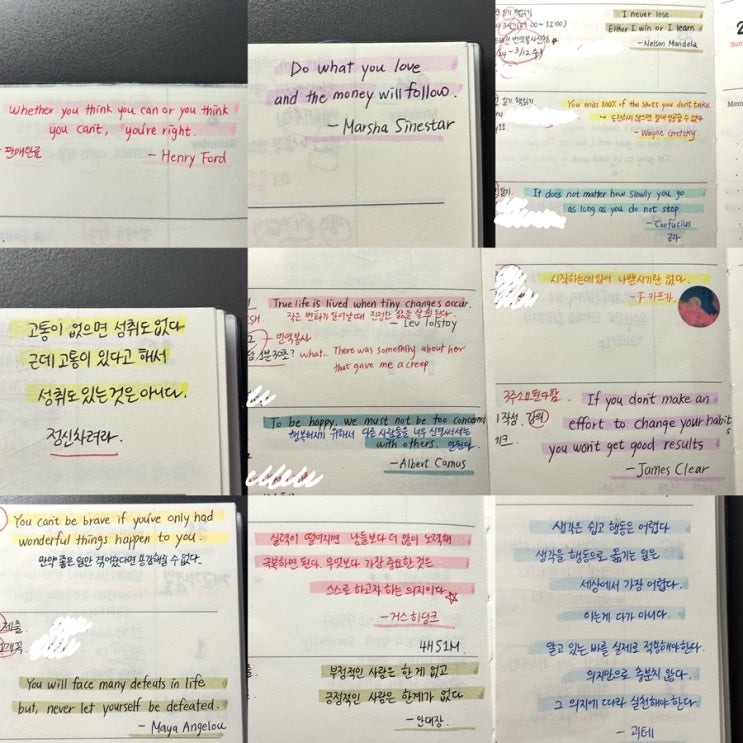 Whether you think you can or you think
you can't, you're right.
판매완료
- Henry Ford
Do what you love
and the money will follow.
- Marsha Sinestar
I never lose
Either I win or I learn
- Nelson Mandela
책읽기
You miss 100% of the shots you don't take
→ 도전하지 않으면 절대 성공할 수 없다
- Wayne Gretzky
It does not matter how slowly you go
as long as you do not stop
- Confucius
공자
고통이 없으면 성취도 없다
근데 고통이 있다고 해서
성취도 있는 것은 아니다.
정신차려라.
True life is lived when tiny changes occur.
작은 변화가 일어날 때 진정한 삶을 살게 된다.
- Lev Tolstoy
번역봉사
what.. There was something about her
that gave me a creep
To be happy, we must not be too concerned
행복해지기 위해서 다른 사람들을 너무 신경써서는
with others. 안된다.
- Albert Camus
시작하는데 있어 나쁜 시기란 없다.
- F 카프카.
3주소요된다함.
If you don't make an
작성 강의
effort to change your habits
you won't get good results
- James Clear
You can't be brave if you've only had
wonderful things happen to you.
만약 좋은 일만 겪어왔다면 용감해질 수 없다.
제출.
You will face many defeats in life
but, never let yourself be defeated.
- Maya Angelou
실력이 떨어지면 남들보다 더 많이 노력해
극복하면 된다. 무엇보다 가장 중요한 것은
스스로 하고자 하는 의지이다
- 거스 히딩크
4H 51M.
부정적인 사람은 한 게 없고
긍정적인 사람은 한계가 없다
- 안대장
생각은 쉽고 행동은 어렵다
생각을 행동으로 옮기는 일은
세상에서 가장 어렵다.
아는게 다가 아니다.
알고 있는 바를 실제로 적용해야한다.
의지만으로 충분치 않다.
그 의지에 따라 실천해야 한다.
- 괴테